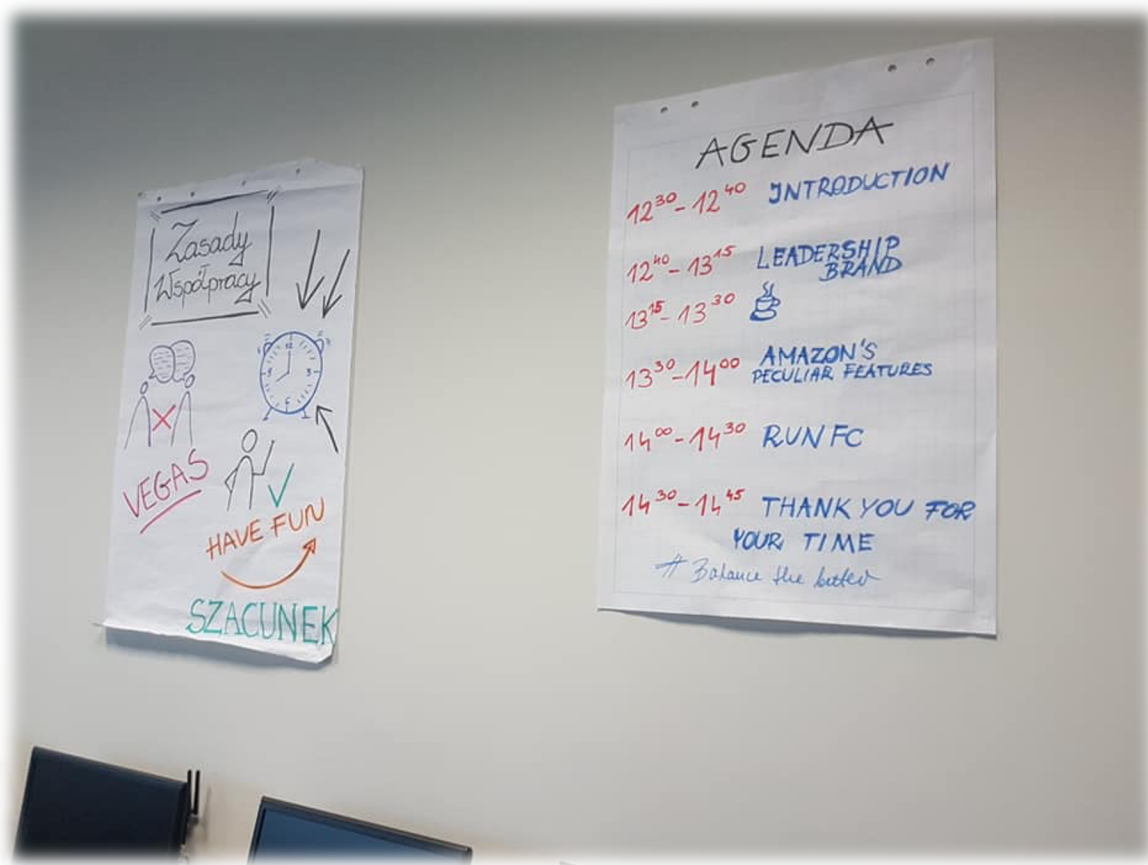 Zasady
Współpracy
VEGAS
HAVE FUN
SZACUNEK
AGENDA
12³⁰-12⁴⁰ INTRODUCTION
12⁴⁰-13¹⁵ LEADERSHIP
BRAND
13¹⁵-13³⁰
13³⁰-14⁰⁰ AMAZON'S
PECULIAR FEATURES
14⁰⁰-14³⁰ RUN FC
14³⁰-14⁴⁵ THANK YOU FOR
YOUR TIME
# Balance the